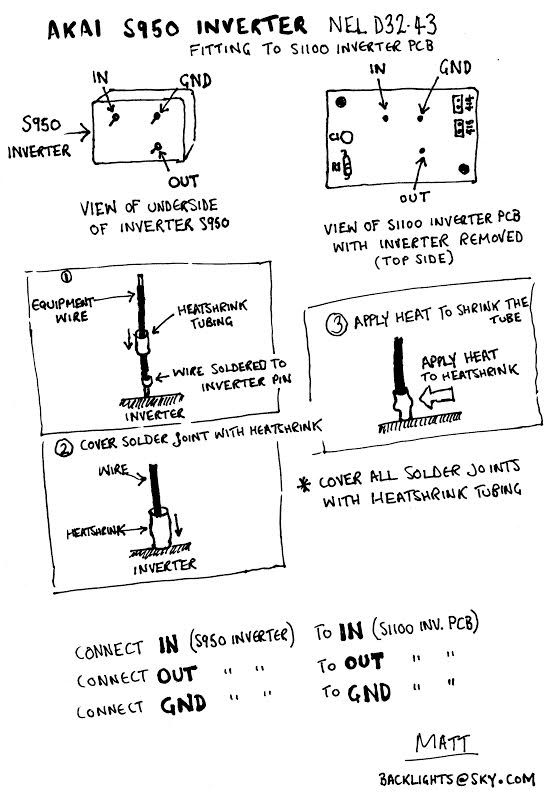 AKAI S950 INVERTER NEL D32-43
FITTING TO S1100 INVERTER PCB
IN
GND
S950
INVERTER
OUT
VIEW OF UNDERSIDE
OF INVERTER S950
IN
GND
C1
R1
OUT
VIEW OF S1100 INVERTER PCB
WITH INVERTER REMOVED
(TOP SIDE)
①
EQUIPMENT
WIRE
HEATSHRINK
TUBING
WIRE SOLDERED TO
INVERTER PIN
INVERTER
② COVER SOLDER JOINT WITH HEATSHRINK
WIRE
HEATSHRINK
INVERTER
③ APPLY HEAT TO SHRINK THE
TUBE
APPLY HEAT
TO HEATSHRINK
* COVER ALL SOLDER JOINTS
WITH HEATSHRINK TUBING
CONNECT IN (S950 INVERTER) TO IN (S1100 INV. PCB)
CONNECT OUT " " TO OUT " "
CONNECT GND " " TO GND " "
MATT
BACKLIGHTS@SKY.COM